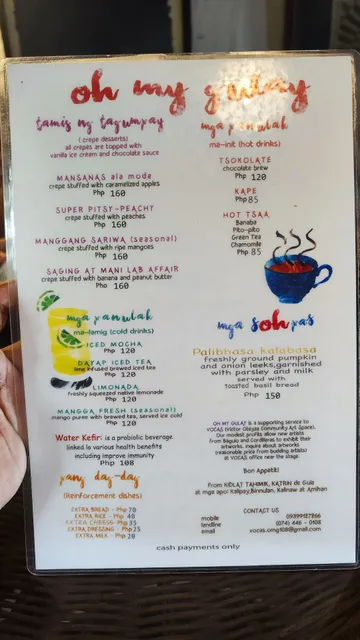 oh my gulay
tamis ng tagumpay
(crepe desserts)
all crepes are topped with
vanilla ice cream and chocolate sauce
MANSANAS ala mode
crepe stuffed with caramelized apples
Php 160
SUPER PITSY-PEACHY
crepe stuffed with peaches
Php 160
MANGGANG SARIWA (seasonal)
crepe stuffed with ripe mangoes
Php 160
SAGING AT MANI LAB AFFAIR
crepe stuffed with banana and peanut butter
Php 160
mga panulak
ma-lamig (cold drinks)
ICED MOCHA
Php 120
DAYAP ICED TEA
lime infused brewed iced tea
Php 120
LIMONADA
freshly squeezed native lemonade
Php 120
MANGGA FRESH (seasonal)
mango puree with brewed tea, served ice cold
Php 120
Water Kefir: is a probiotic beverage
linked to various health benefits
including improve immunity
Php 108
pang dag-dag
(Reinforcement dishes)
EXTRA BREAD - Php 70
EXTRA RICE - Php 40
EXTRA CHEESE - Php 35
EXTRA DRESSING - Php 25
EXTRA MILK - Php 20
mga panulak
ma-init (hot drinks)
TSOKOLATE
chocolate brew
Php 120
KAPE
Php 85
HOT TSAA
Banaba
Pito-pito
Green Tea
Chamomile
Php 85
mga sohpas
Palibhasa kalabasa
freshly ground pumpkin
and onion leeks, garnished
with parsley and milk
served with
toasted basil bread
Php 150
OH MY GULAY is a supporting service to
VOCAS (Victor Oteyza Community Art Space).
Our modest profits allow new artists
from Baguio and Cordilleras to exhibit their
artworks. inquire about artworks
(reasonable price from budding artists)
at VOCAS office near the stage.
Bon Appetit!
From KIDLAT TAHIMIK, KATRIN de Guia
at mga apo: Kalipay, Binnulan, Kalinaw at Amihan
CONTACT US
mobile 09399187866
landline (074) 446 - 0108
email vocas.omg108@gmail.com
cash payments only